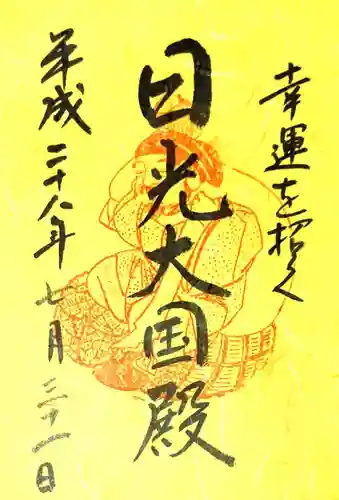 幸運を招く
日光大国殿
平成二十八年七月三十一日